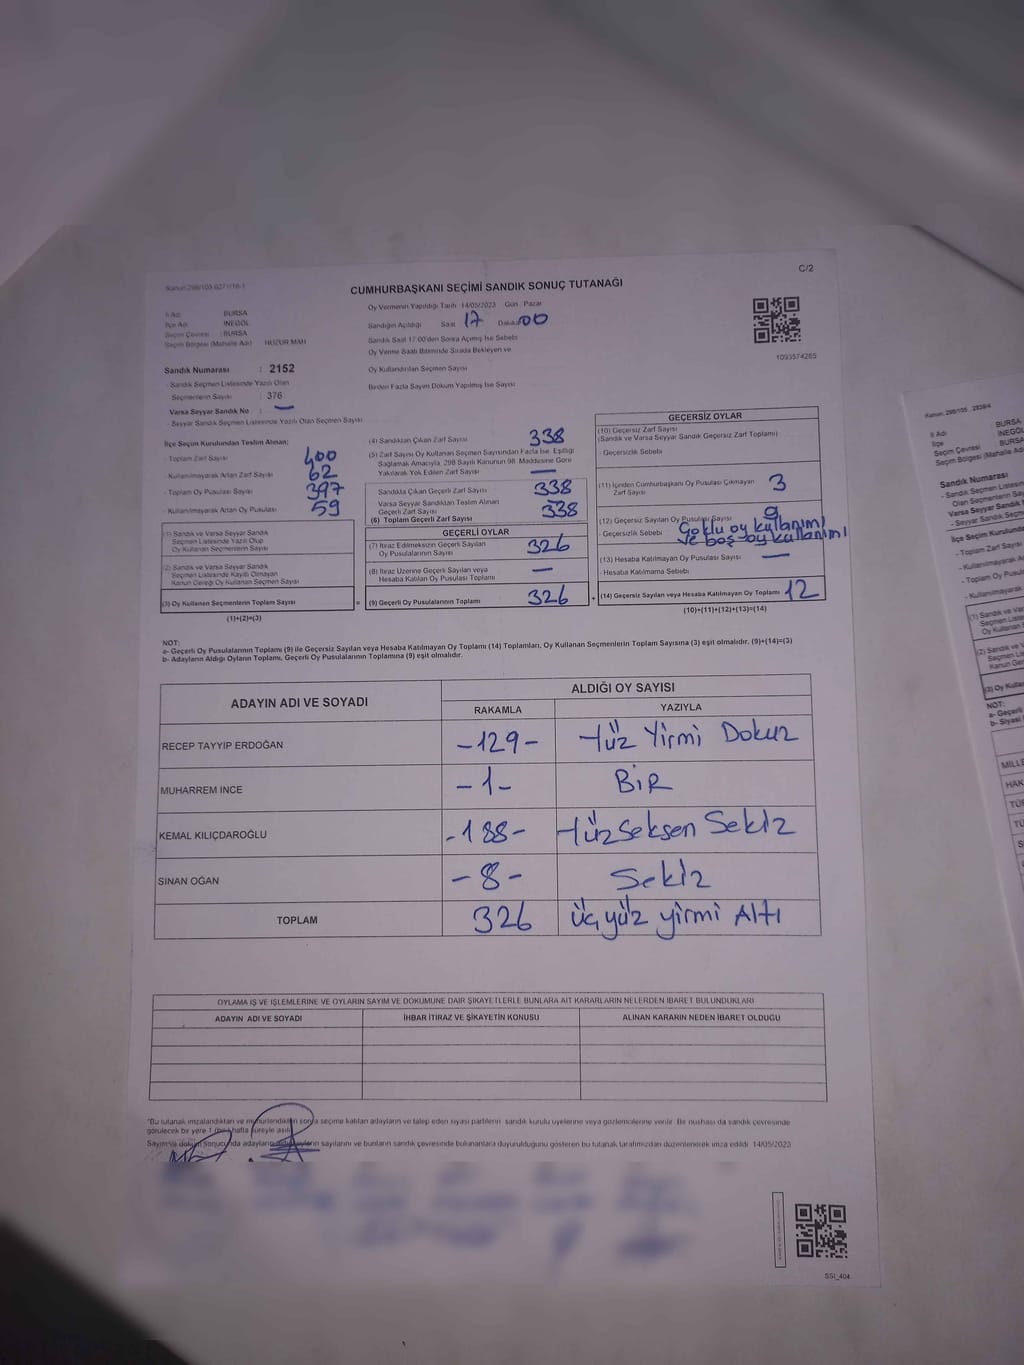 C/2
Kanun:298/105
CUMHURBAŞKANI SEÇİMİ SANDIK SONUÇ TUTANAĞI
Oy Vermenin Yapıldığı Tarih : 14/05/2023 Gün : Pazar
Sandığın Açıldığı Saat 17 Dakika 00
Sandık Saat 17:00'den Sonra Açılmış İse Sebebi
Oy Verme Saati Bitiminde Sırada Bekleyen ve
Oy Kullandırılan Seçmen Sayısı
Birden Fazla Sayım Döküm Yapılmış İse Sayısı
İl Adı : BURSA
İlçe Adı : İNEGÖL
Seçim Çevresi : BURSA
Seçim Bölgesi (Mahalle Adı) : HUZUR MAH
1093574265
Sandık Numarası : 2152
- Sandık Seçmen Listesinde Yazılı Olan
Seçmenlerin Sayısı : 376
Varsa Seyyar Sandık No : —
- Seyyar Sandık Seçmen Listesinde Yazılı Olan Seçmen Sayısı
İlçe Seçim Kurulundan Teslim Alınan;
- Toplam Zarf Sayısı 400
- Kullanılmayarak Artan Zarf Sayısı 62
- Toplam Oy Pusulası Sayısı 397
- Kullanılmayarak Artan Oy Pusulası 59
(1) Sandık ve Varsa Seyyar Sandık
Seçmen Listesinde Yazılı Olup
Oy Kullanan Seçmenlerin Sayısı
(2) Sandık ve Varsa Seyyar Sandık
Seçmen Listesinde Kayıtlı Olmayan
Kanun Gereği Oy Kullanan Seçmen Sayısı
(3) Oy Kullanan Seçmenlerin Toplam Sayısı
(1)+(2)=(3)
=
(4) Sandıktan Çıkan Zarf Sayısı 338
(5) Zarf Sayısı Oy Kullanan Seçmen Sayısından Fazla İse, Eşitliği
Sağlamak Amacıyla, 298 Sayılı Kanunun 98. Maddesine Göre
Yakılarak Yok Edilen Zarf Sayısı —
Sandıkta Çıkan Geçerli Zarf Sayısı 338
Varsa Seyyar Sandıktan Teslim Alınan
Geçerli Zarf Sayısı
(6) Toplam Geçerli Zarf Sayısı 338
GEÇERLİ OYLAR
(7) İtiraz Edilmeksizin Geçerli Sayılan
Oy Pusulalarının Sayısı 326
(8) İtiraz Üzerine Geçerli Sayılan veya
Hesaba Katılan Oy Pusulası Toplamı —
(9) Geçerli Oy Pusulalarının Toplamı 326
+
GEÇERSİZ OYLAR
(10) Geçersiz Zarf Sayısı
(Sandık ve Varsa Seyyar Sandık Geçersiz Zarf Toplamı)
- Geçersizlik Sebebi
(11) İçinden Cumhurbaşkanı Oy Pusulası Çıkmayan
Zarf Sayısı 3
(12) Geçersiz Sayılan Oy Pusulası Sayısı 9
- Geçersizlik Sebebi Çoklu oy kullanımı
ve boş oy kullanımı
(13) Hesaba Katılmayan Oy Pusulası Sayısı —
- Hesaba Katılmama Sebebi
(14) Geçersiz Sayılan veya Hesaba Katılmayan Oy Toplamı 12
(10)+(11)+(12)+(13)=(14)
NOT:
a- Geçerli Oy Pusulalarının Toplamı (9) ile Geçersiz Sayılan veya Hesaba Katılmayan Oy Toplamı (14) Toplamları, Oy Kullanan Seçmenlerin Toplam Sayısına (3) eşit olmalıdır. (9)+(14)=(3)
b- Adayların Aldığı Oyların Toplamı, Geçerli Oy Pusulalarının Toplamına (9) eşit olmalıdır.
ADAYIN ADI VE SOYADI
ALDIĞI OY SAYISI
RAKAMLA YAZIYLA
RECEP TAYYİP ERDOĞAN -129- Yüz Yirmi Dokuz
MUHARREM İNCE -1- BİR
KEMAL KILIÇDAROĞLU -188- Yüz Seksen Sekiz
SİNAN OĞAN -8- Sekiz
TOPLAM 326 üç yüz yirmi Altı
OYLAMA İŞ VE İŞLEMLERİNE VE OYLARIN SAYIM VE DÖKÜMÜNE DAİR ŞİKAYETLERLE BUNLARA AİT KARARLARIN NELERDEN İBARET BULUNDUKLARI
ADAYIN ADI VE SOYADI İHBAR İTİRAZ VE ŞİKAYETİN KONUSU ALINAN KARARIN NEDEN İBARET OLDUĞU
"Bu tutanak imzalandıktan ve mühürlendikten sonra seçime katılan adayların ve talep eden siyasi partilerin sandık kurulu üyelerine veya gözlemcilerine verilir. Bir nüshası da sandık çevresinde
görülecek bir yere 1 (bir) hafta süreyle asılır.
Sayım ve döküm sonucunda adayların sayılarını ve bunların sandık çevresinde bulunanlara duyurulduğunu gösteren bu tutanak tarafımızdan düzenlenerek imza edildi. 14/05/2023
SSİ_404
İl Adı BURSA
İlçe İNEGÖL
Seçim Çevresi BURSA
Seçim Bölgesi (Mahalle Ad
Sandık Numarası
NOT:
MİLLE
HAK